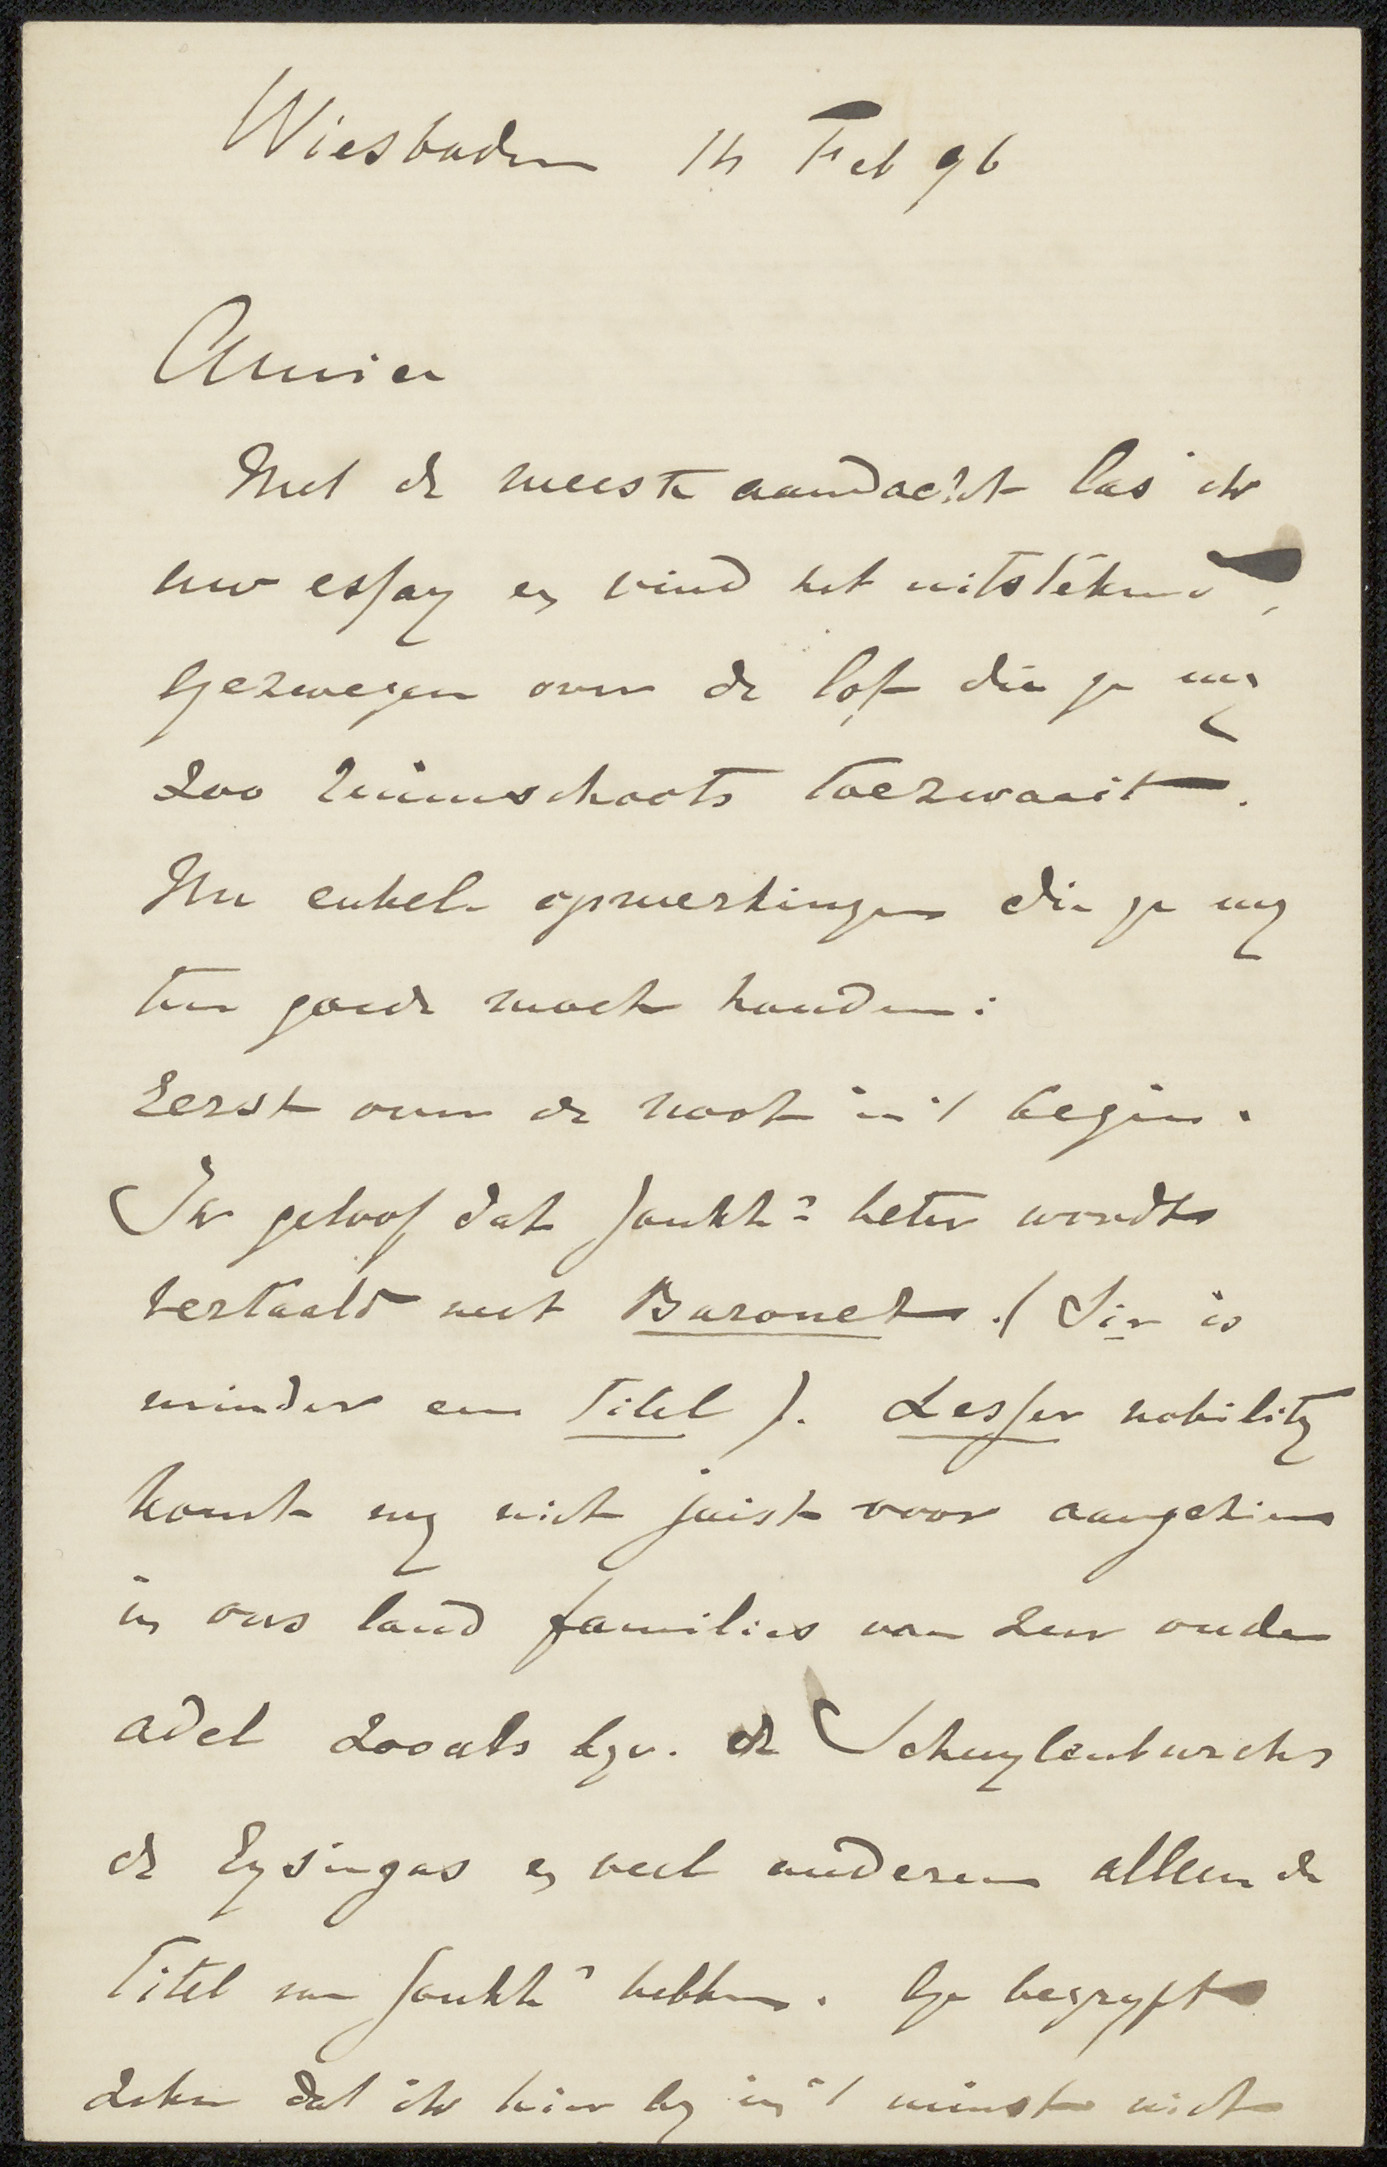 Wiesbaden 14 Feb 96
Amice
Met de meeste aandacht las ik
uw essay en vind het uitstekend,
gezwegen over de lof die je my
zoo ruimschoots toezwaait.
Nu enkele opmerkingen die je my
ten goede moet houden:
Eerst over de noot in 't begin.
Ik geloof dat Jonkhr beter wordt
vertaald met Baronet. (Sir is
minder een titel). Lesser nobility
komt my niet juist voor aangezien
in ons land families van zeer ouden
adel zooals bzv. de Schuylenburchs
de Eysingas en veel anderen alleen de
titel van Jonkhr hebben. Ge begrypt
zeker dat ik hier by in 't minst niet